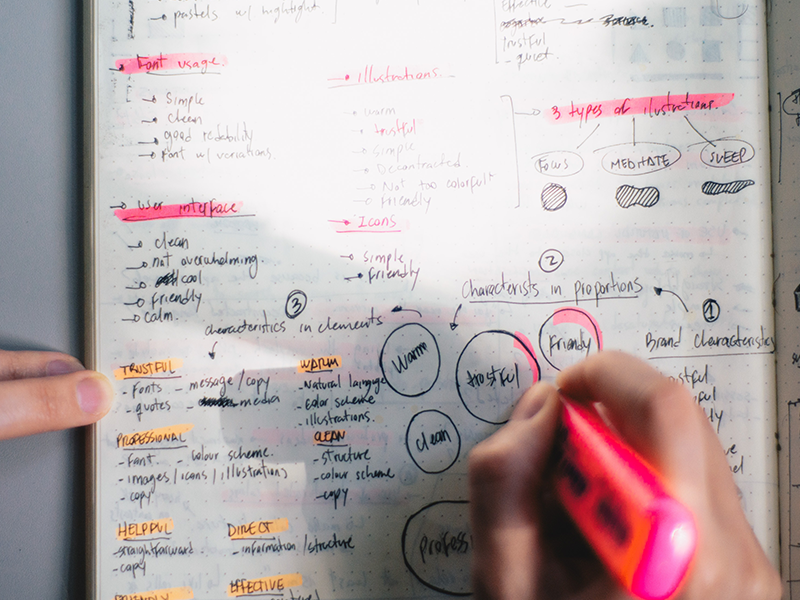 pastels w/ hightight.
Effective
trustful
- quiet.
Font usage
Simple
clean
good redebility
Font w/ variations.
Illustrations.
warm
trustful
Simple
Decontracted.
Not too colorful!
friendly
3 types of ilustrations.
FOCUS
MEDITATE
SLEEP
user interface
clean
not overwhelming
cool
friendly
calm.
Icons
simple
friendly
2
Characterists in proportions
3
characteristics in elements
1
Brand characteristics
Warm
trustful
Friendly
clean
TRUSTFUL
- Fonts
- quotes
- message/copy
- media
WARM
- Natural language
- Color scheme
- illustrations.
PROFESSIONAL
- Font
- colour scheme.
- images/icons/illustrations
- copy
CLEAN
- structure
- colour scheme
- copy
HELPFUL
- straightforward
- copy
DIRECT
- information/structure
FRIENDLY
EFFECTIVE